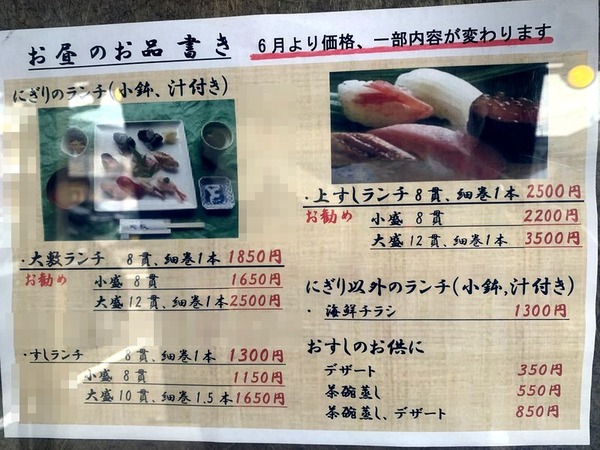 お昼のお品書き
6月より価格、一部内容が変わります
にぎりのランチ(小鉢、汁付き)
・大敷ランチ 8貫、細巻1本 1850円
お勧め 小盛 8貫 1650円
大盛12貫、細巻1本 2500円
・すしランチ 8貫、細巻1本 1300円
小盛 8貫 1150円
大盛10貫、細巻1.5本 1650円
・上すしランチ 8貫、細巻1本 2500円
お勧め 小盛 8貫 2200円
大盛12貫、細巻1本 3500円
にぎり以外のランチ(小鉢,汁付き)
・ 海鮮チラシ 1300円
おすしのお供に
デザート 350円
茶碗蒸し 550円
茶碗蒸し、デザート 850円